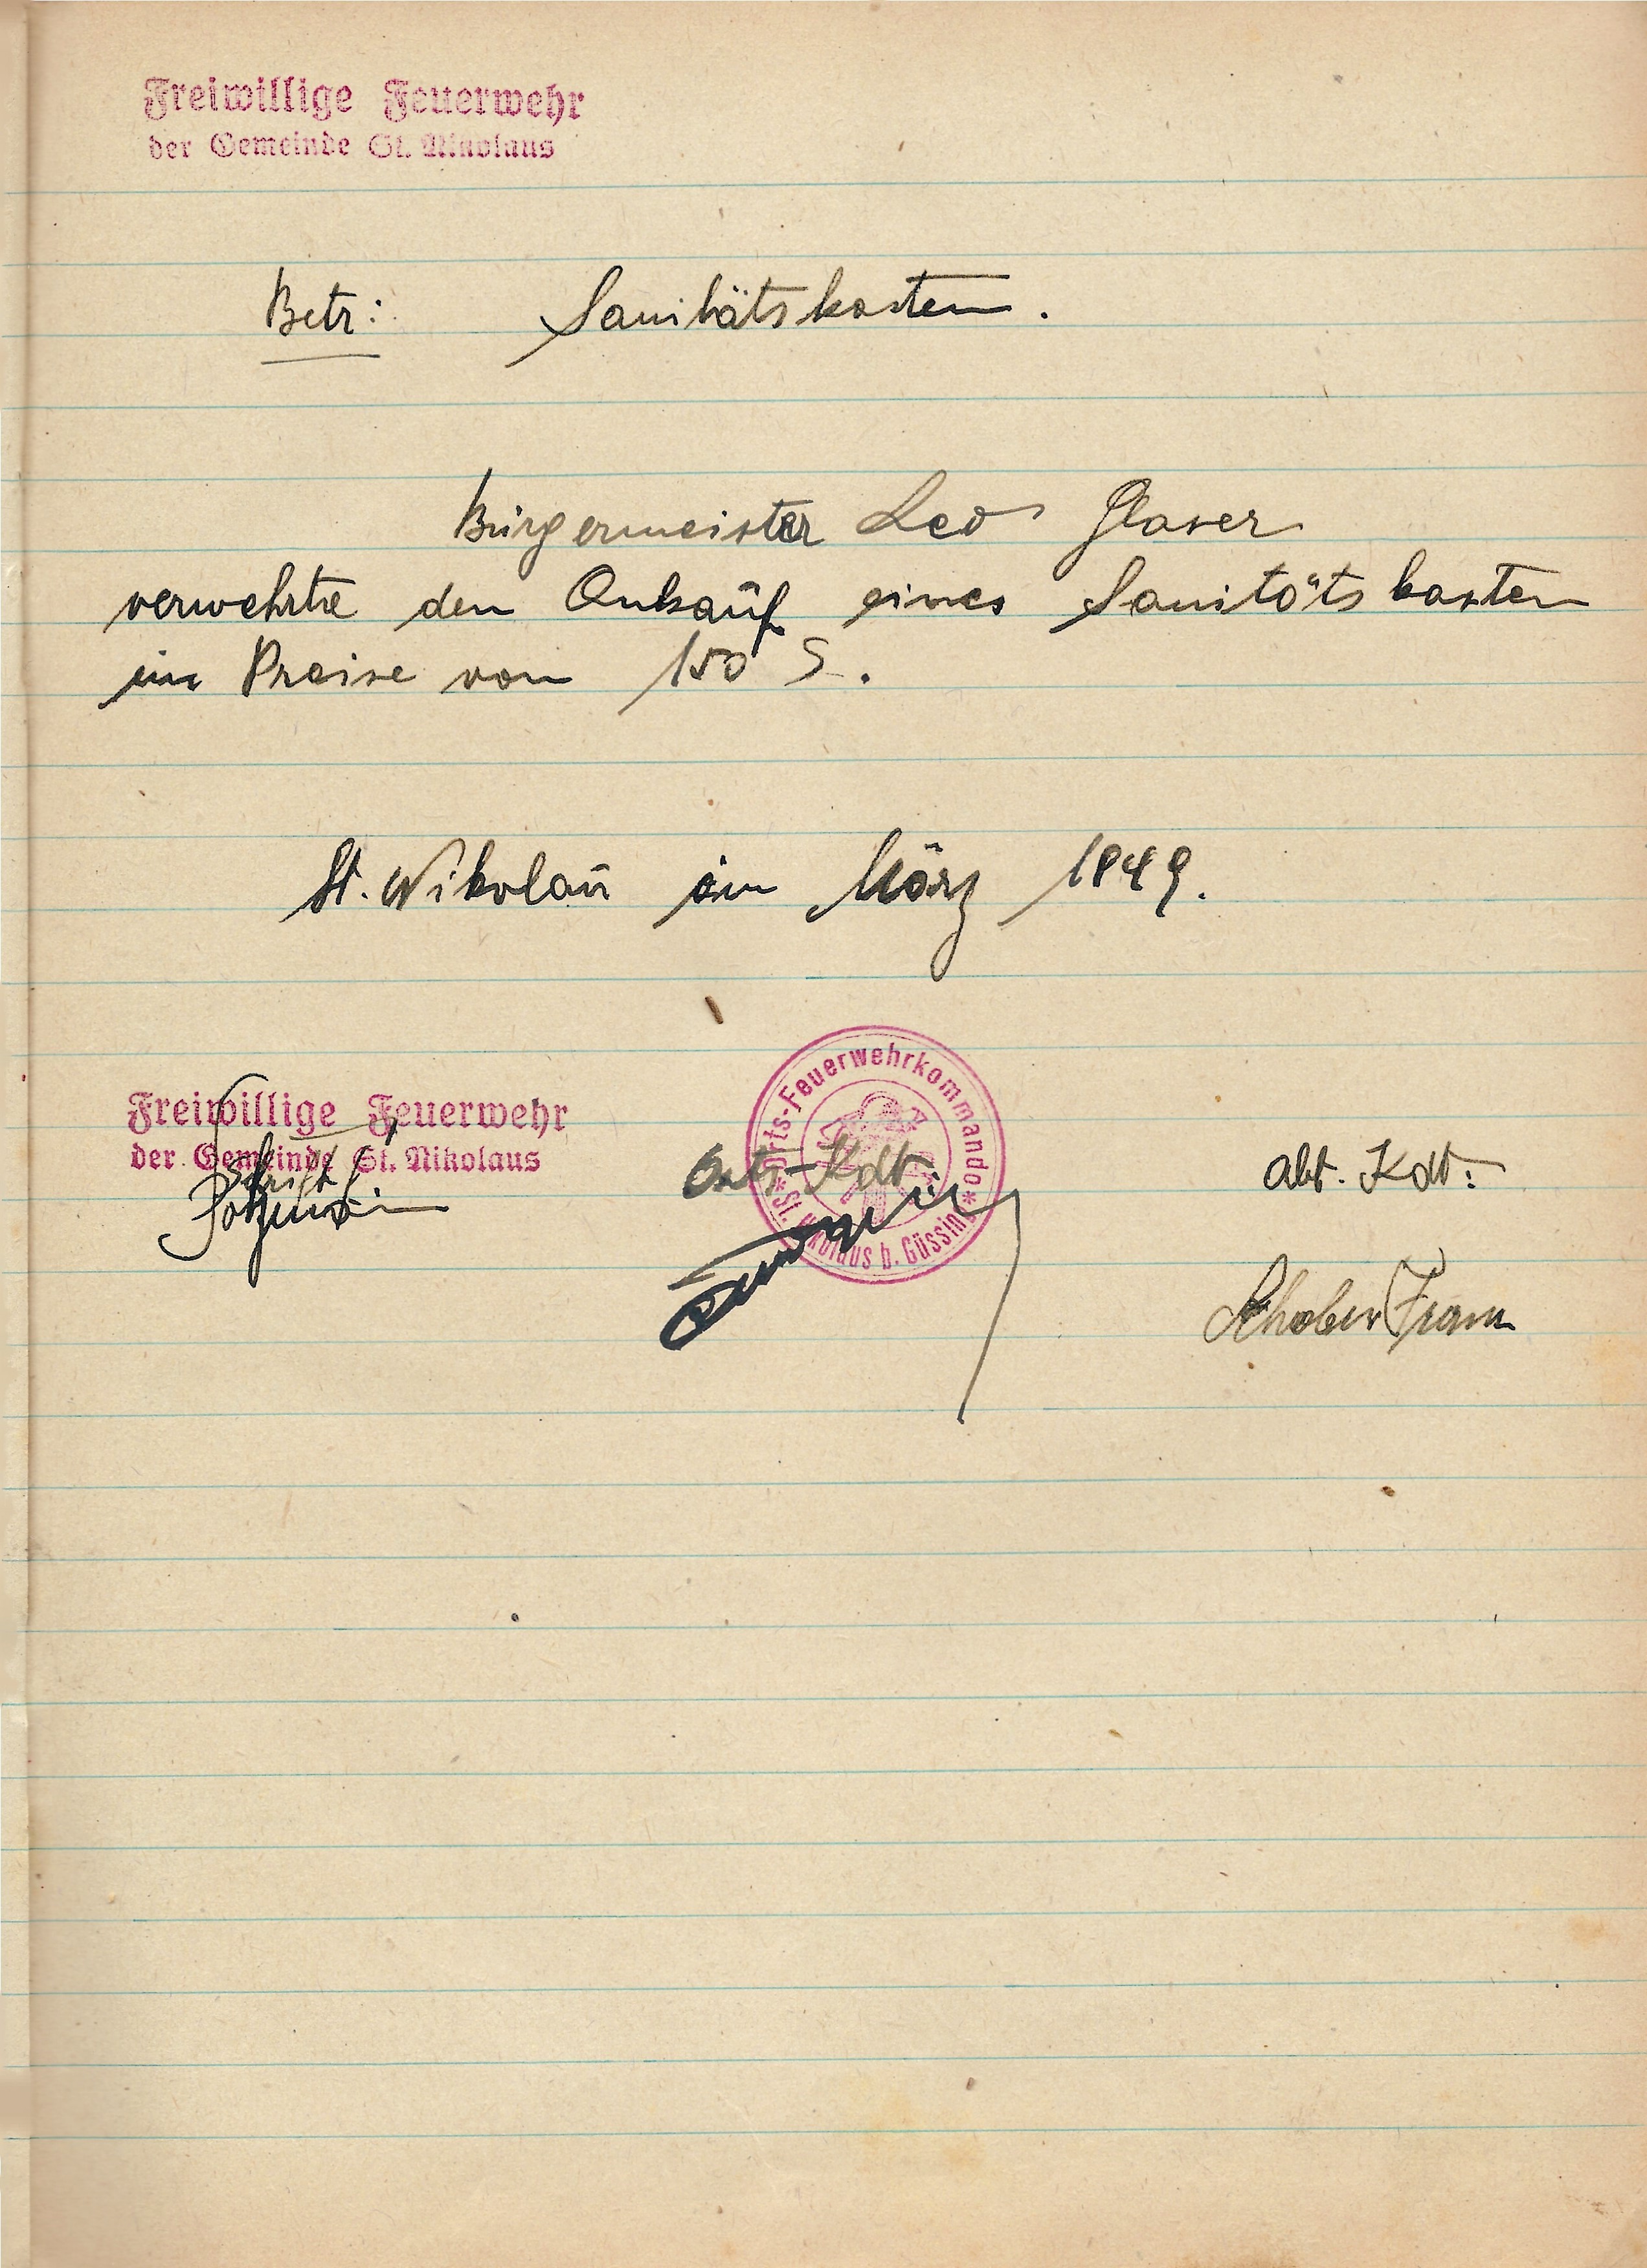 Freiwillige Feuerwehr
der Gemeinde St. Nikolaus
Betr: Sanitätskasten.
Bürgermeister Leo Glaser
verwehrte den Ankauf eines Sanitätskasten
im Preise von 150 S.
St. Nikolau im März 1949.
Freiwillige Feuerwehr
der Gemeinde St. Nikolaus
Orts-Feuerwehrkommando
* St. Nikolaus b. Güssing *
Orts-Kdt:
Abt. Kdt:
Schober Franz